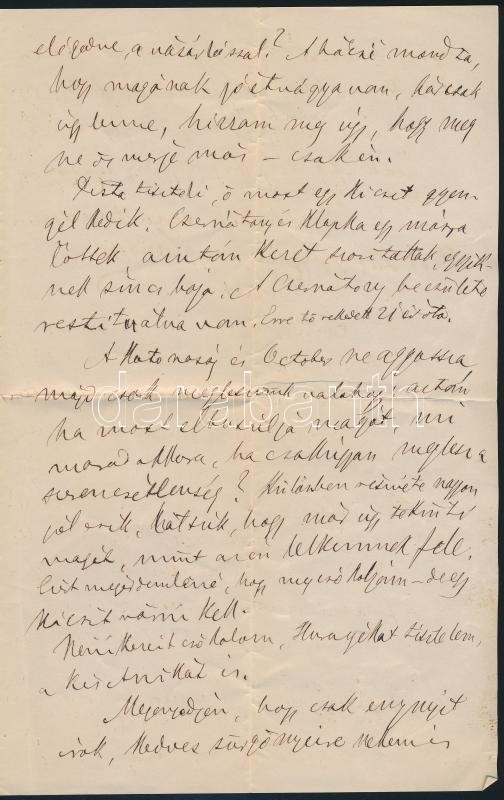 elégedve, a vásárlással? A bácsi mondja,
hogy magának jó étvágya van, bárcsak
úgy lenne, híszam meg úgy, hogy meg
ne is merje más – csak én.
tiszteli, ő most egy kicsit gyen-
gélkedik. Csernátony és Klapka egymásra
lőttek aztán kezet szorítottak, egyik-
nek sincs baja. A Csernátony becsülete
restituálva van. Erre törekedett 21 év óta.
A katonaság és October ne aggassza
majd csak megleszünk valahogy; aztán
ha most elbusulja magát, mi
marad akkora, ha csakugyan meglesz a
szerencsétlenség? Különben nagyon
jól esik, látnunk, hogy már úgy tekinti
magát, mint az én lelkemnek fele.
Ezért megérdemlené, hogy megcsókoljam – de egy
kicsit várni kell.
csókolom, tisztelem,
a kis is.
Megengedjen, hogy csak ennyit
írok, kedves sürgönyeire nekem is